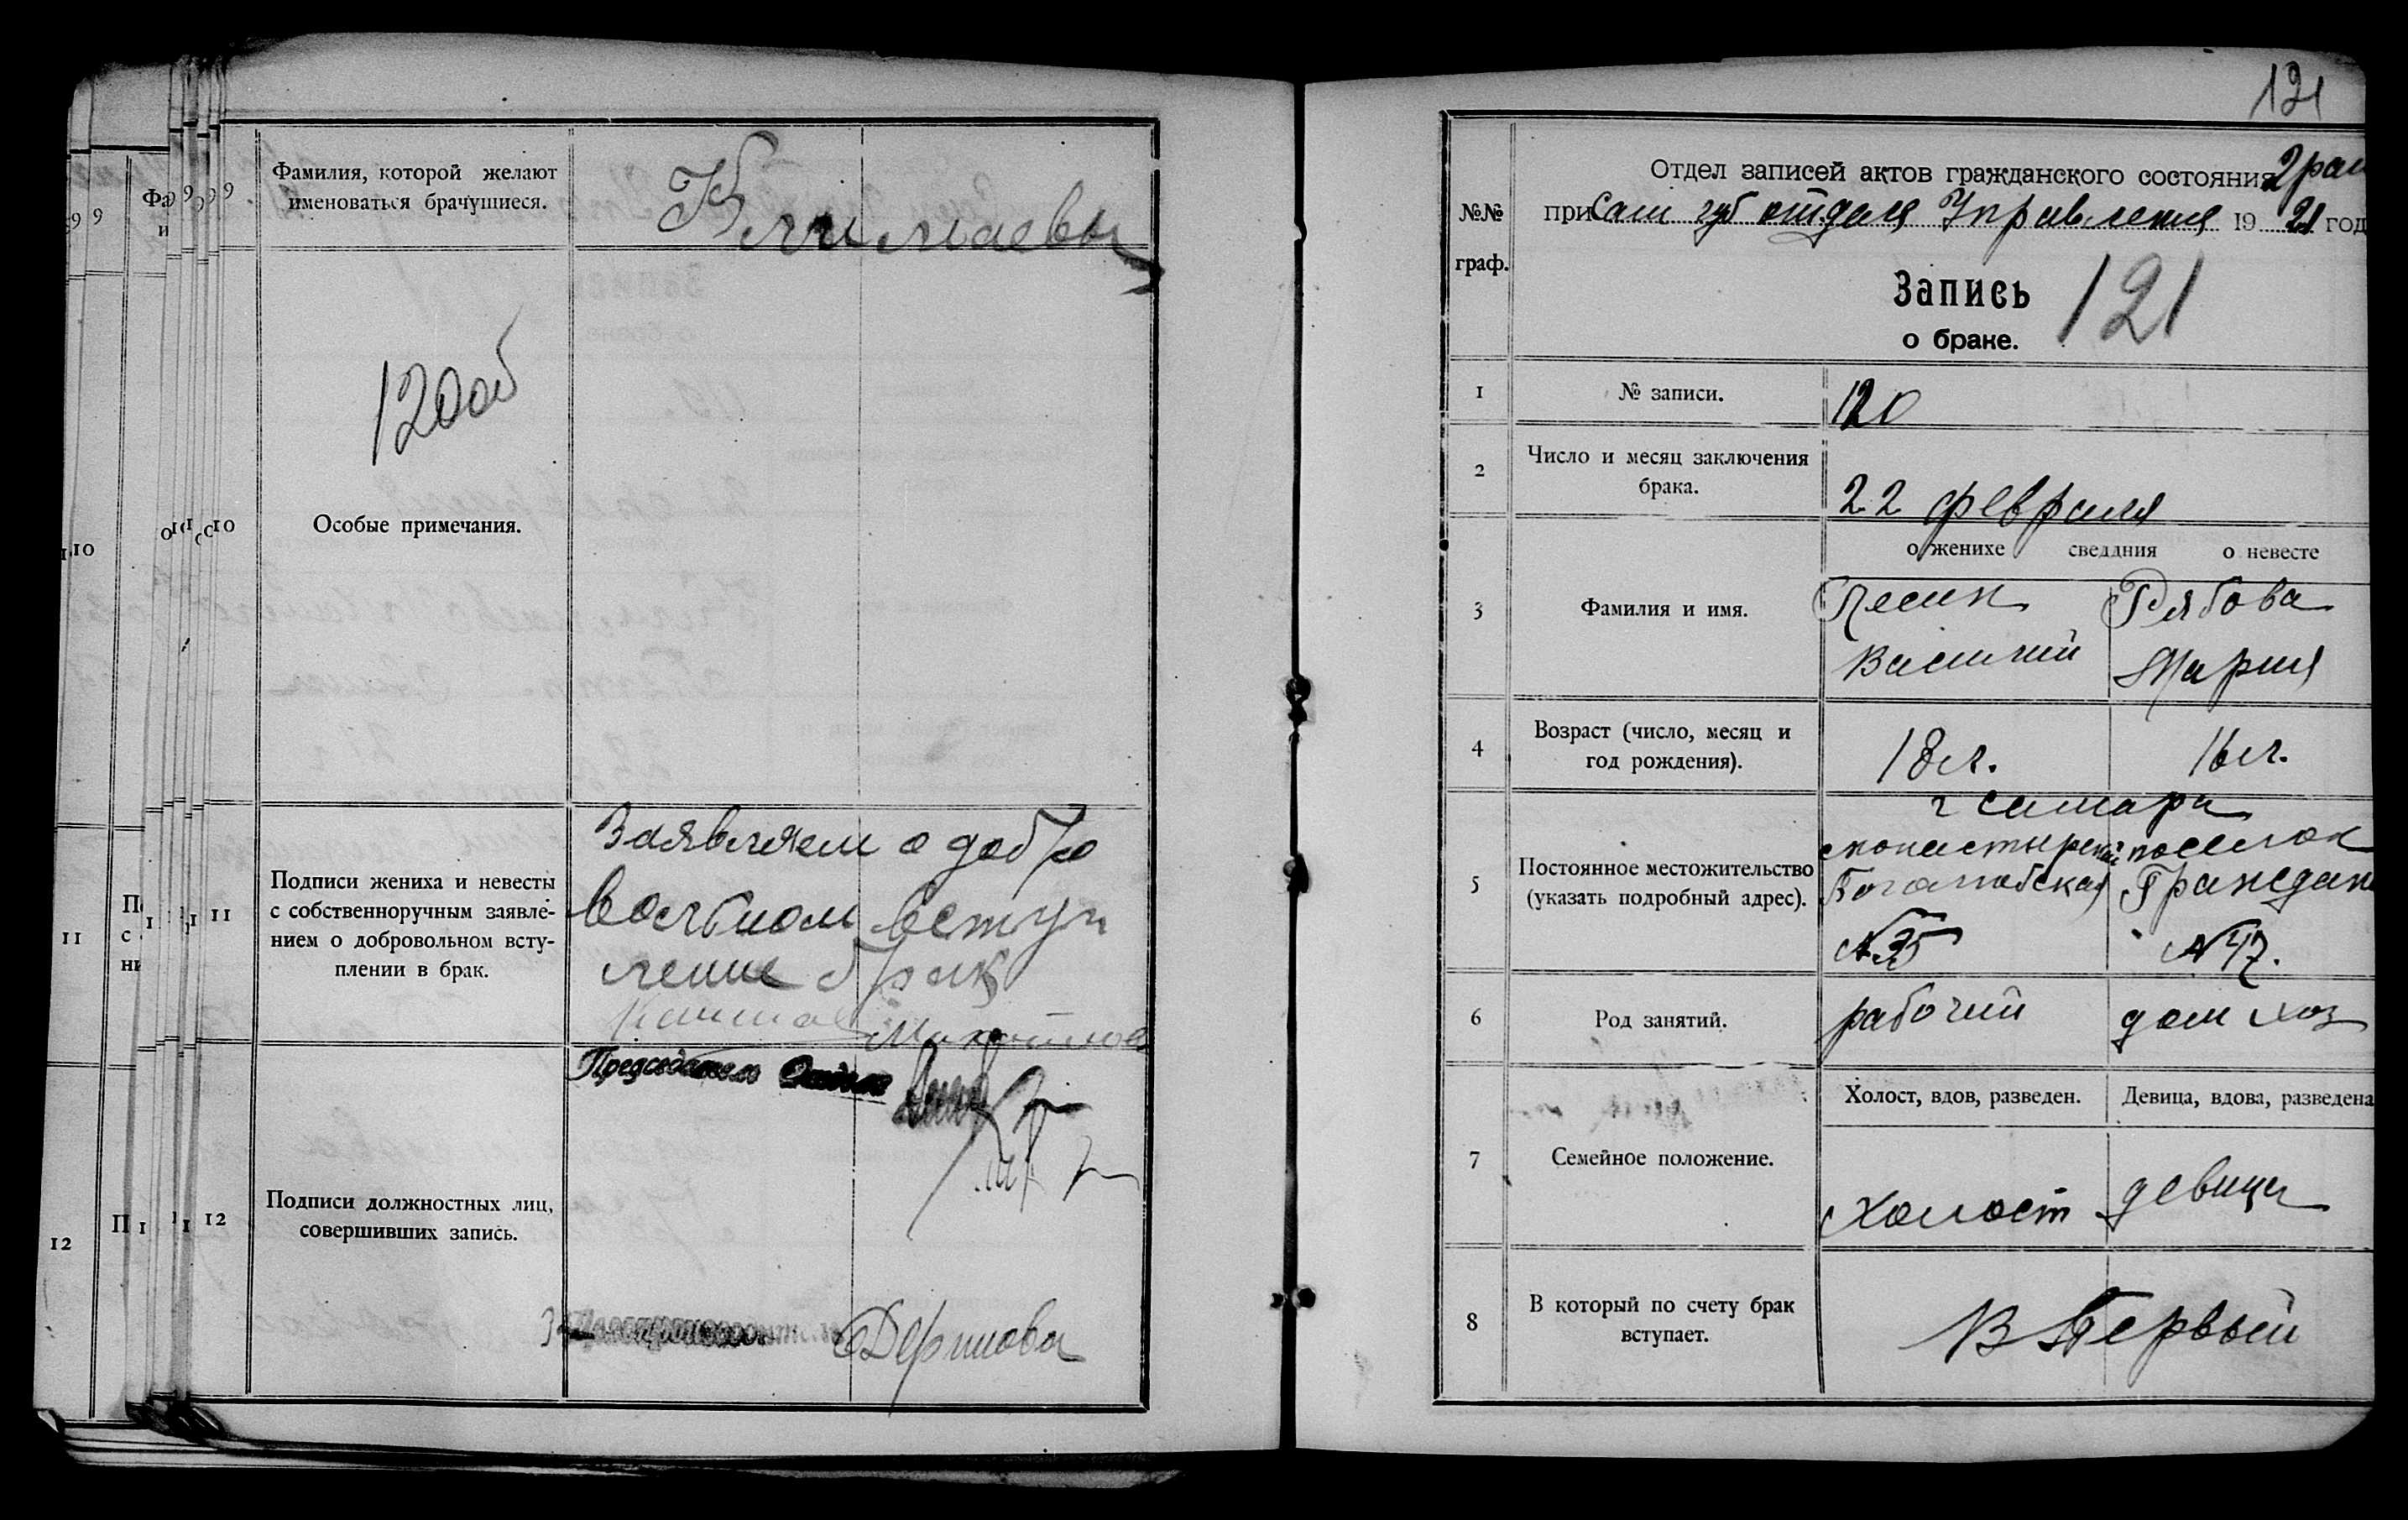 Фамилия, которой желают
именоваться брачущиеся.
Особые примечания.
Заявляем о добро
вольном вступ
ление брак
Подписи жениха и невесты
с собственноручным заявле-
нием о добровольном всту-
плении в брак.
Председатель Отдела
Подписи должностных лиц,
совершивших запись.
9
10
11
12
121
Отдел записей актов гражданского состояния 2 рай
при Сам губ отдела Управления 19 21 год
№№
граф.
Запись 121
о браке.
1 № записи. 120
2 Число и месяц заключения
брака. 22 февраля
о женихе сведдния о невесте
3 Фамилия и имя.
Песин Рябова
Василий Мария
4 Возраст (число, месяц и
год рождения). 18 л. 16 л.
г Самара
монастырский поселок
5 Постоянное местожительство
(указать подробный адрес).
Граждан
№ 35 № 47.
6 Род занятий. рабочий дом хоз
Холост, вдов, разведен. Девица, вдова, разведена
7 Семейное положение.
Холост девица
8 В который по счету брак
вступает. В Первый